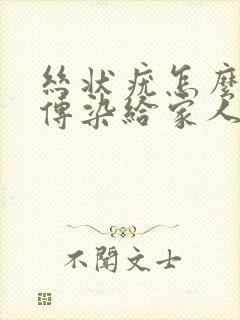 絲狀疣怎麼
傳染給家人
不聞文士